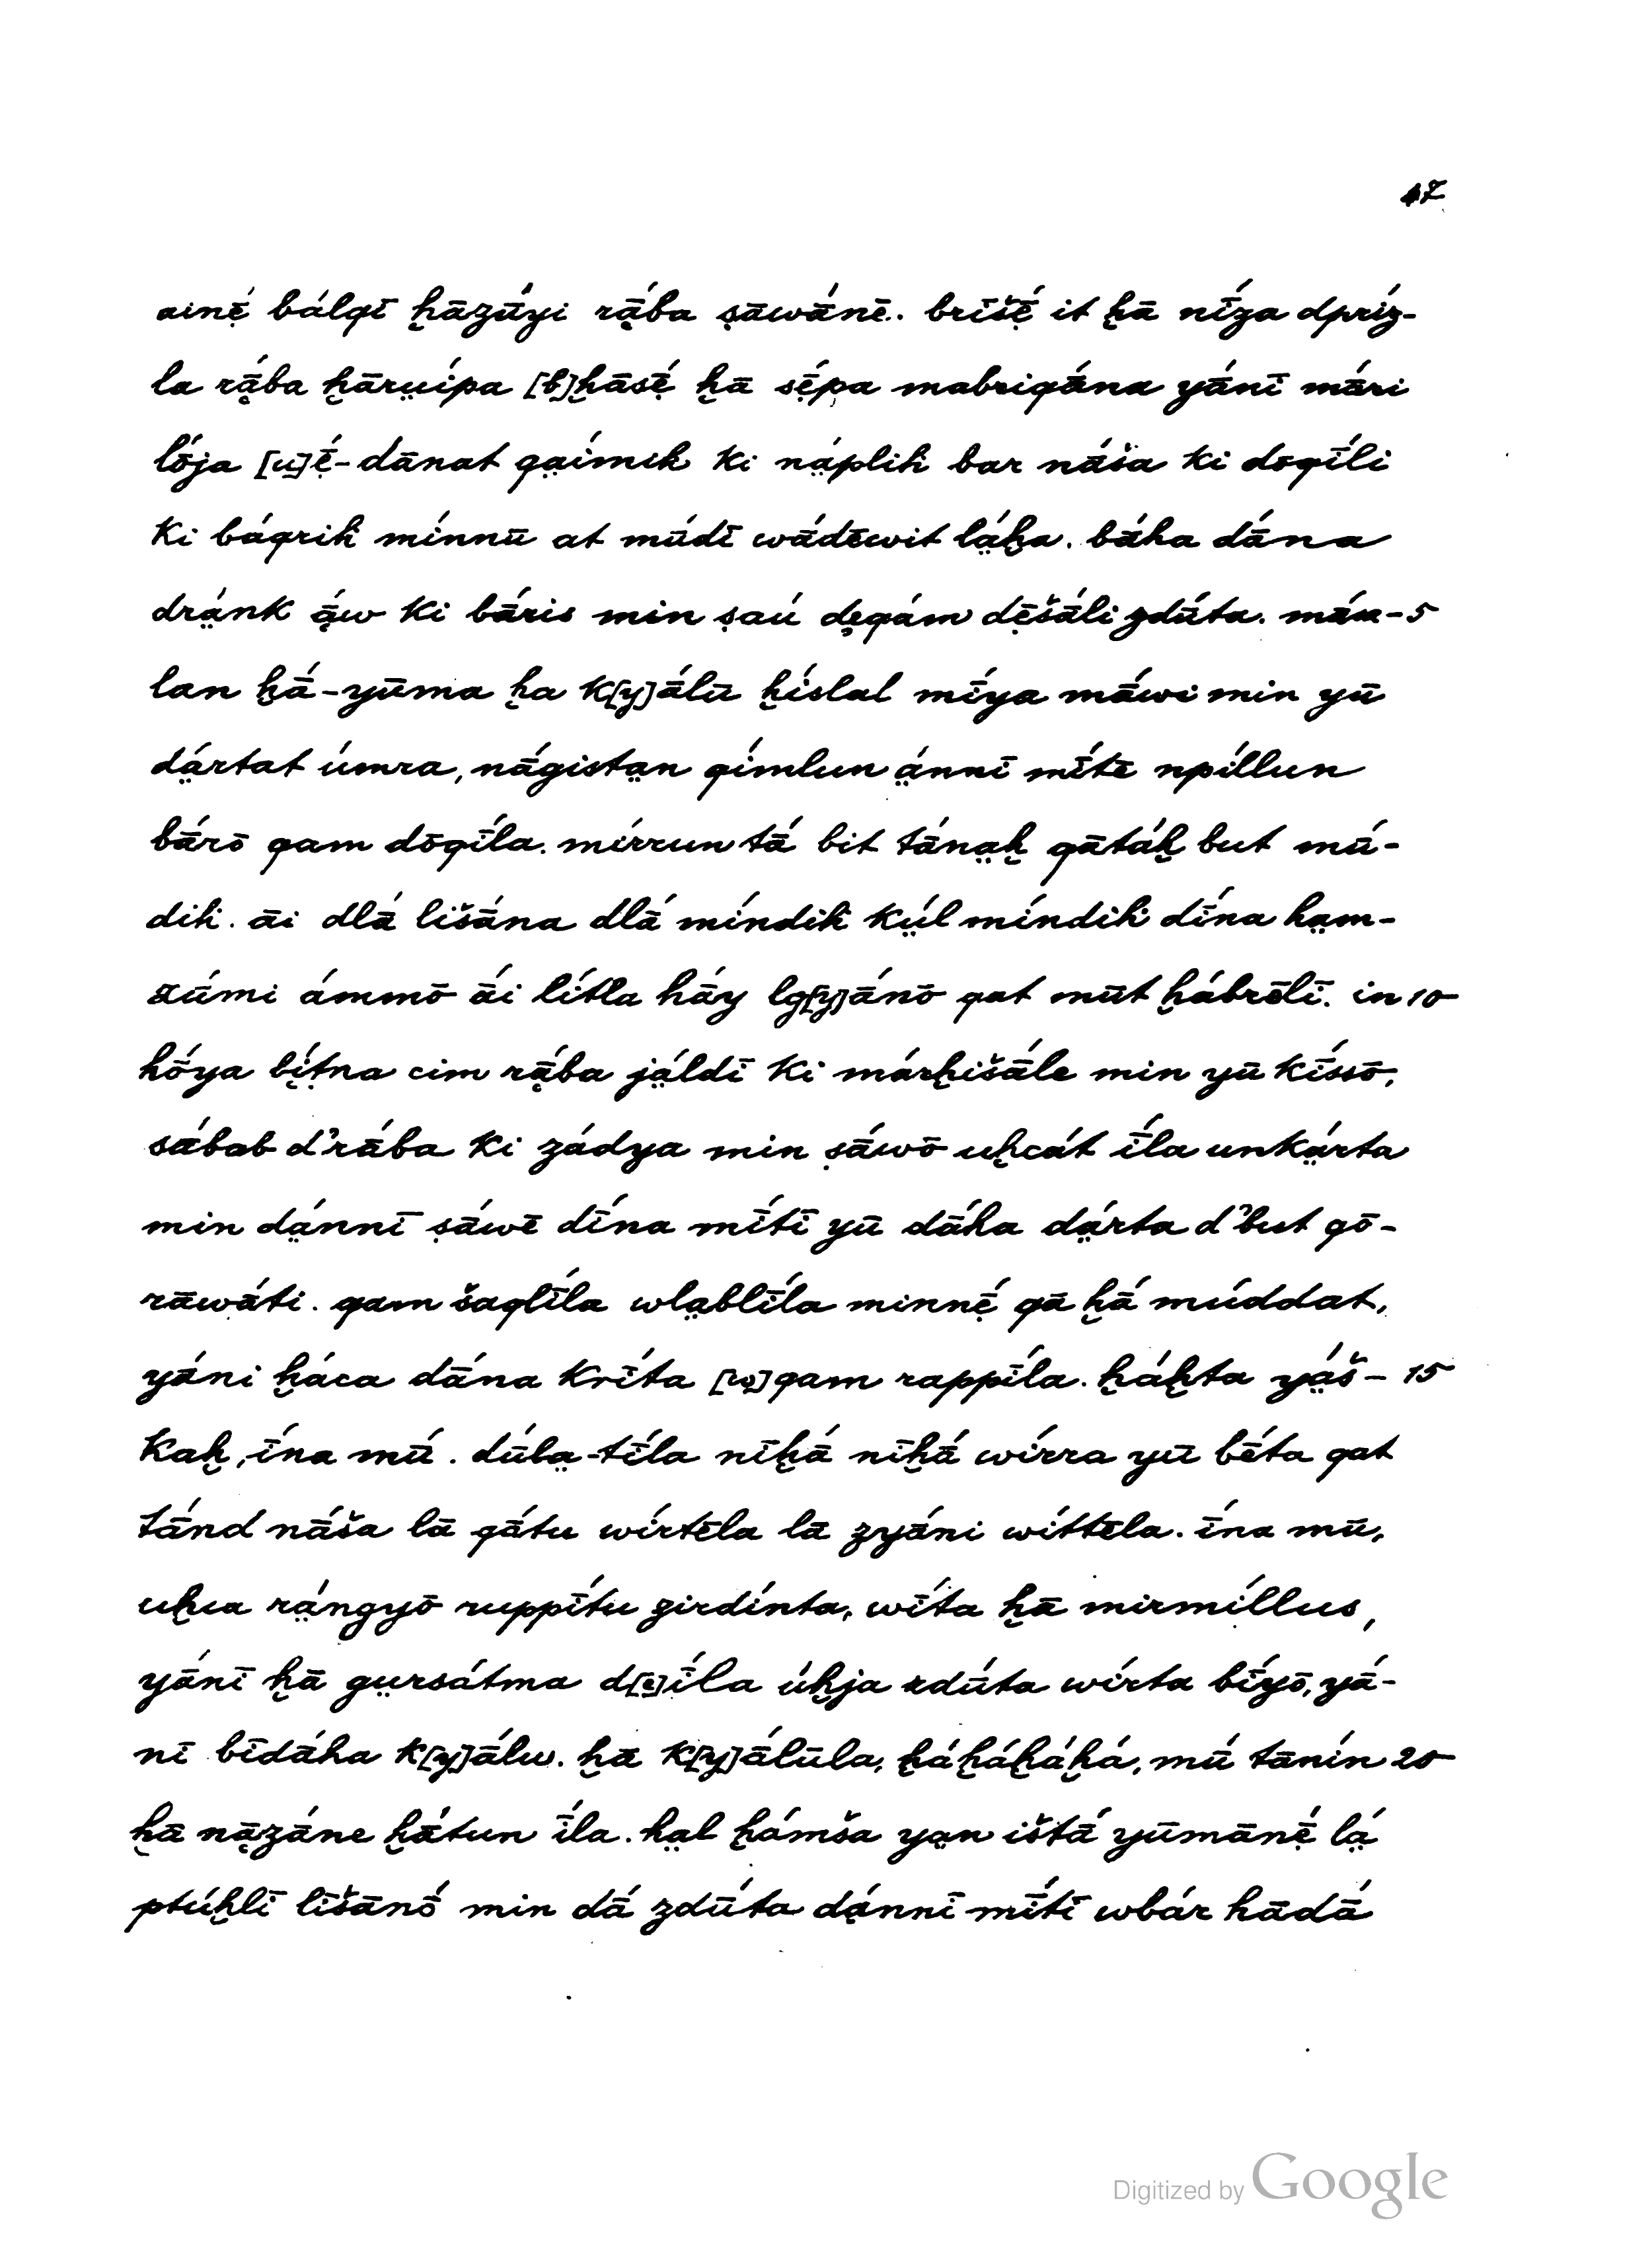 47
ainẹ́ bálqī ḫāzā́yi rą̄́ba ṣāwā́nē. brīšẹ́ it ḫā nī́za dpríz-
la rą̄́ba ḫārṳípa [b]ḫāsẹ́ ḫā sẹ́pa mabriqā́na yā́nī mā́ri
lṓja [u]ẹ́-dānat qa̤ímik ki na̤plíh bar nā́ša ki dōqī́li
ki bāqrih mínnū at mūdī wādēwit lā̤́ḫa. bā́ha dā́na
dra̤nk ą̄́w ki bā́ris min ṣaú dẹqám dẹ̄šā́li zdū́ta. mā́x- 5
lan ḫā́-yūma ḫa k[y]ā́lū ḫíslal mī́ya mā́wi min yū
da̤rtat úmra, nā́gista̤n qímlun a̤nnī mī́tē npíllun
bā́rō qam dōqī́la. mírrun tā́ bit tā́na̤ḫ qātáḫ but mū́-
dih. āi dlā́ lišā́na dlā́ míndih kṳ́l míndih dī́na ha̤m-
zū́mi ámmō ā́i lítla hā́y lg[y]ā́nō qat mūt ḫábrēlī. in 10
hṓya bíṭna cim rą̄́ba ja̤ldī ki márḫišā́le min yū kíssō,
sábab d'rā́ba ki zádya min ṣā́wō uḫcát ī́la unka̤rta
min da̤nnī ṣā́wē dī́na mī́tī yū dā́ha da̤rta d'but gō-
rāwā́ti. qam šaqlī́la wla̤blī́la minnẹ́ qā ḫā́ múddat,
yā́ni ḫáca dā́na krī́ta [w]qam rappī́la. ḫáḫta ya̤š- 15
kaḫ, ī́na mū́. dūla̤-tī́la nīḫā́ nīḫā́ wírra yū bḗta qat
tā́nd nā́ša lā qā́tu wírtēla lā zyā́ni wíttēla. ī́na mū,
uḫua ra̤ngyō ruppī́tu zirdínta, wī́ta ḫā mirmíllus,
yā́nī ḫā gṳrsátma d[e]ī́la úḫja zdū́ta wírta bī́yō, yā́-
nī bīdā́ha k[y]ā́lw. ḫā k[y]ā́lūla, ḫáḫáḫáḫá, mū́ tānín 20
ḫā ną̄zā́ne ḫā́tun ī́la. ha̤l ḫámša ya̤n ištā́ yūmānẹ́ lā̤́
ptúḫlī līšānṓ min dā́ zdū́ta da̤nnī mī́tī wbár hādā́
Digitized by Google